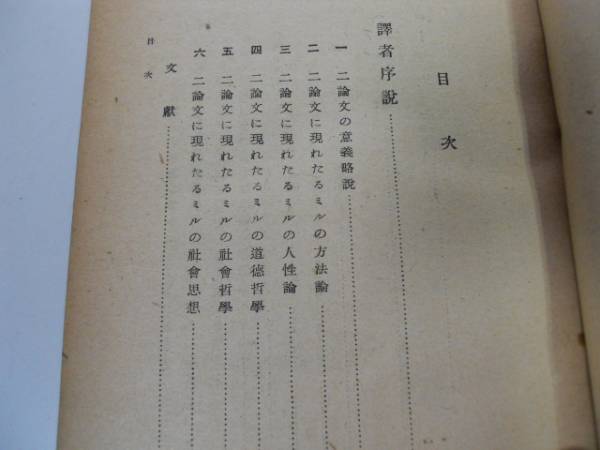 目次
譯者序說
一 二論文の意義略說
二 二論文に現れたるミルの方法論
三 二論文に現れたるミルの人性論
四 二論文に現れたるミルの道德哲學
五 二論文に現れたるミルの社會哲學
六 二論文に現れたるミルの社會思想
文獻
目次